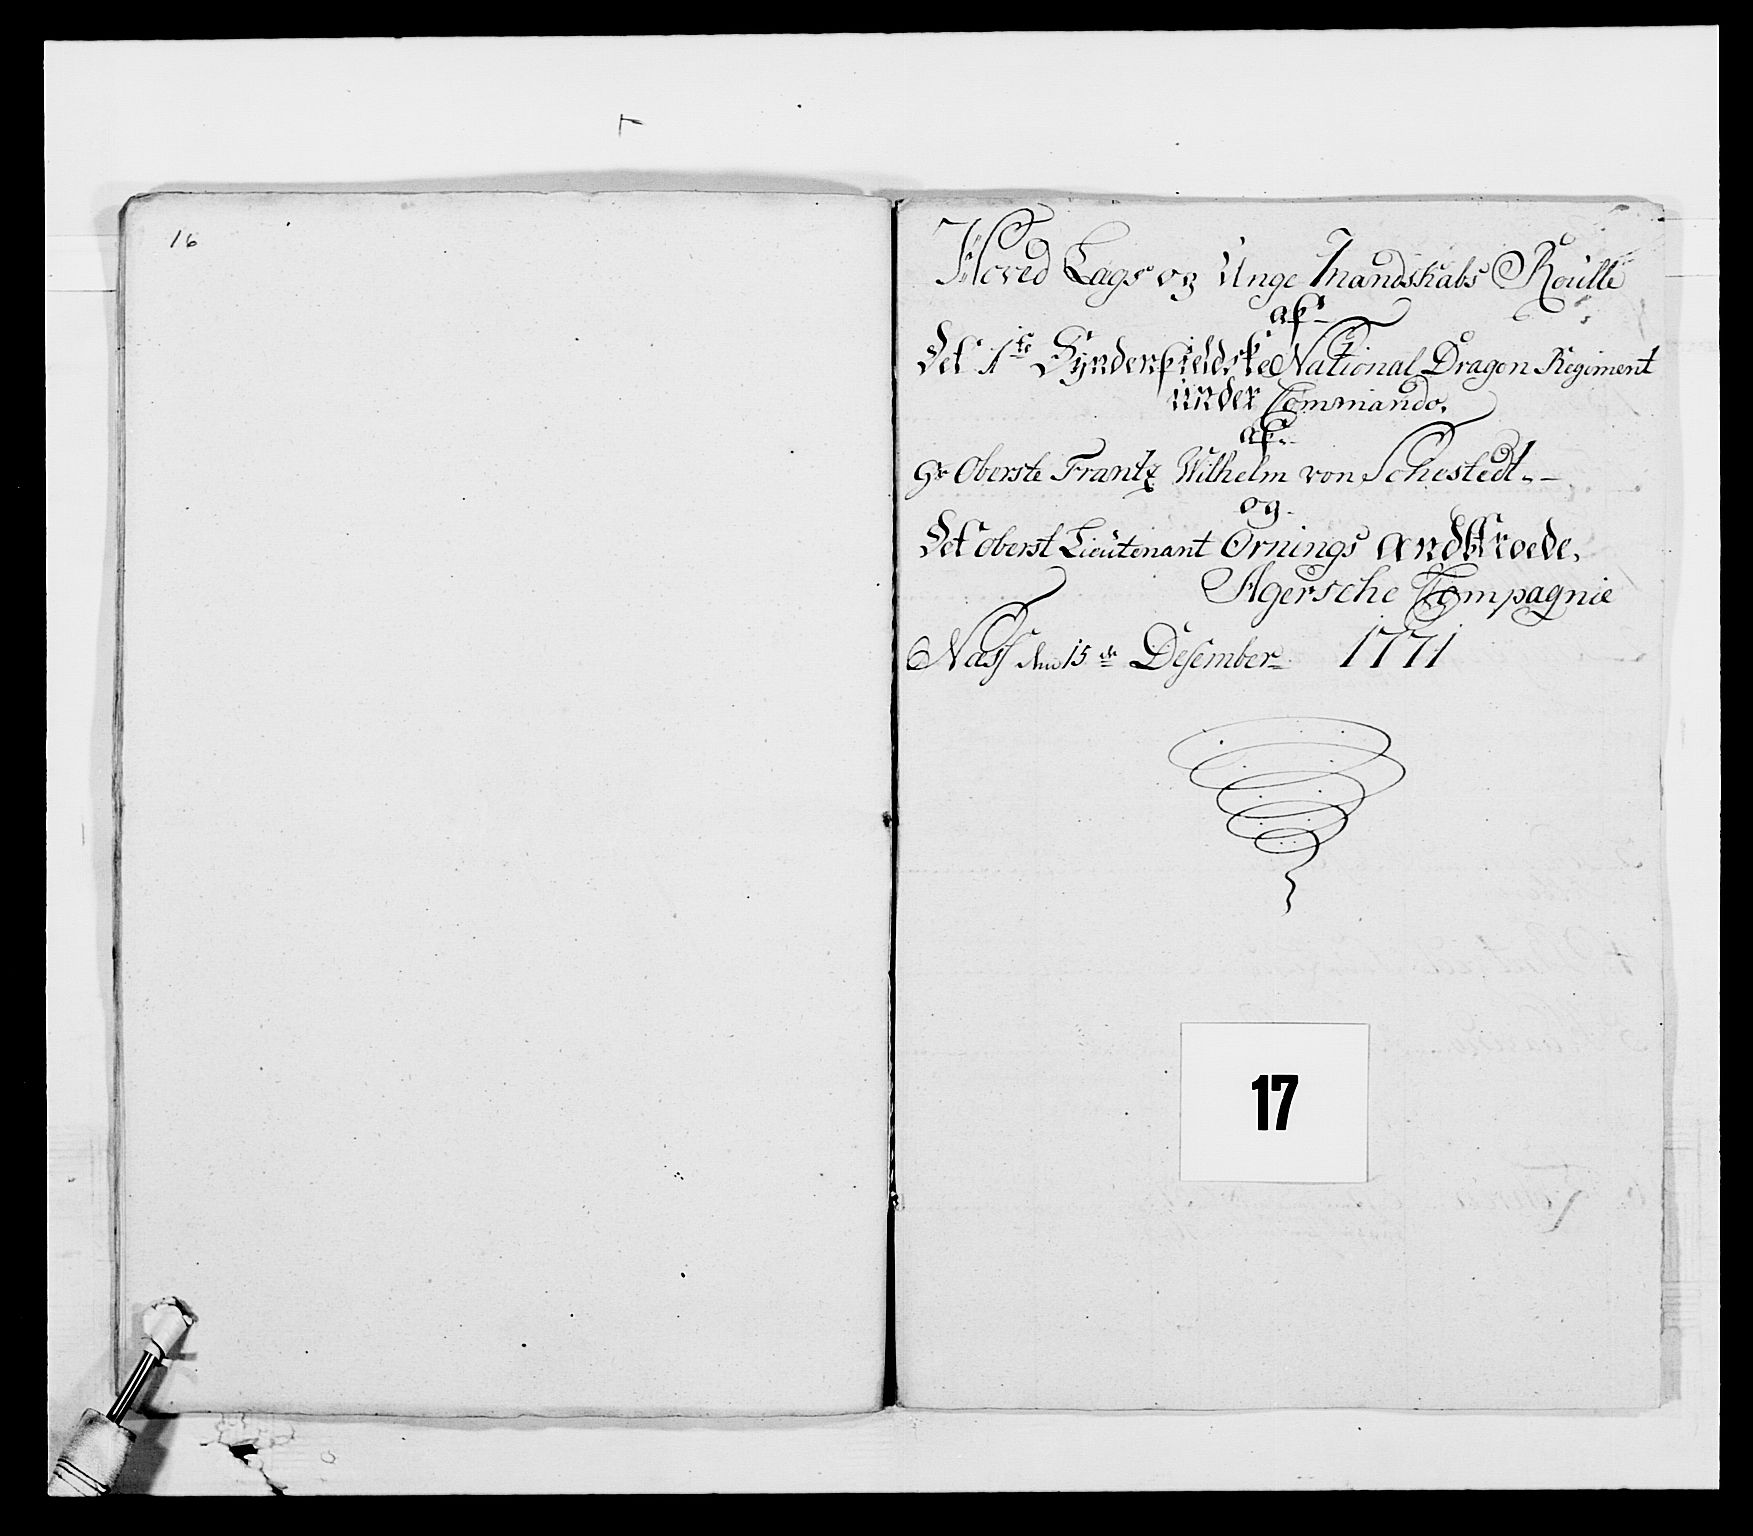 16
Hoved Lags og Unge Mandskabs Roulle
af
Det 1te Synderfieldske National Dragon Regiment
under Commando.
af
Hr Oberste Frantz Wilhelm von Schestedt.
og
Det oberst Lieutenant Ornings andtroede.
Agersche Compagnie
Næss den 15de Desember 1771
17